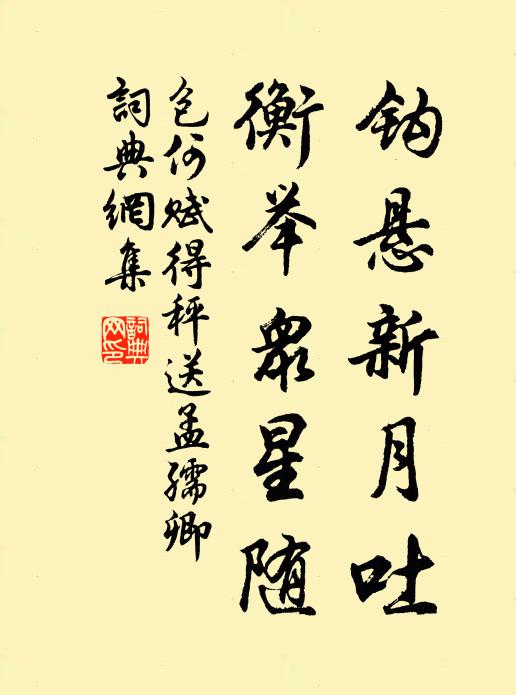 钩悬新月吐
衡举众星随
包何赋得秤送孟孺卿
詞典網集
詞典
网印